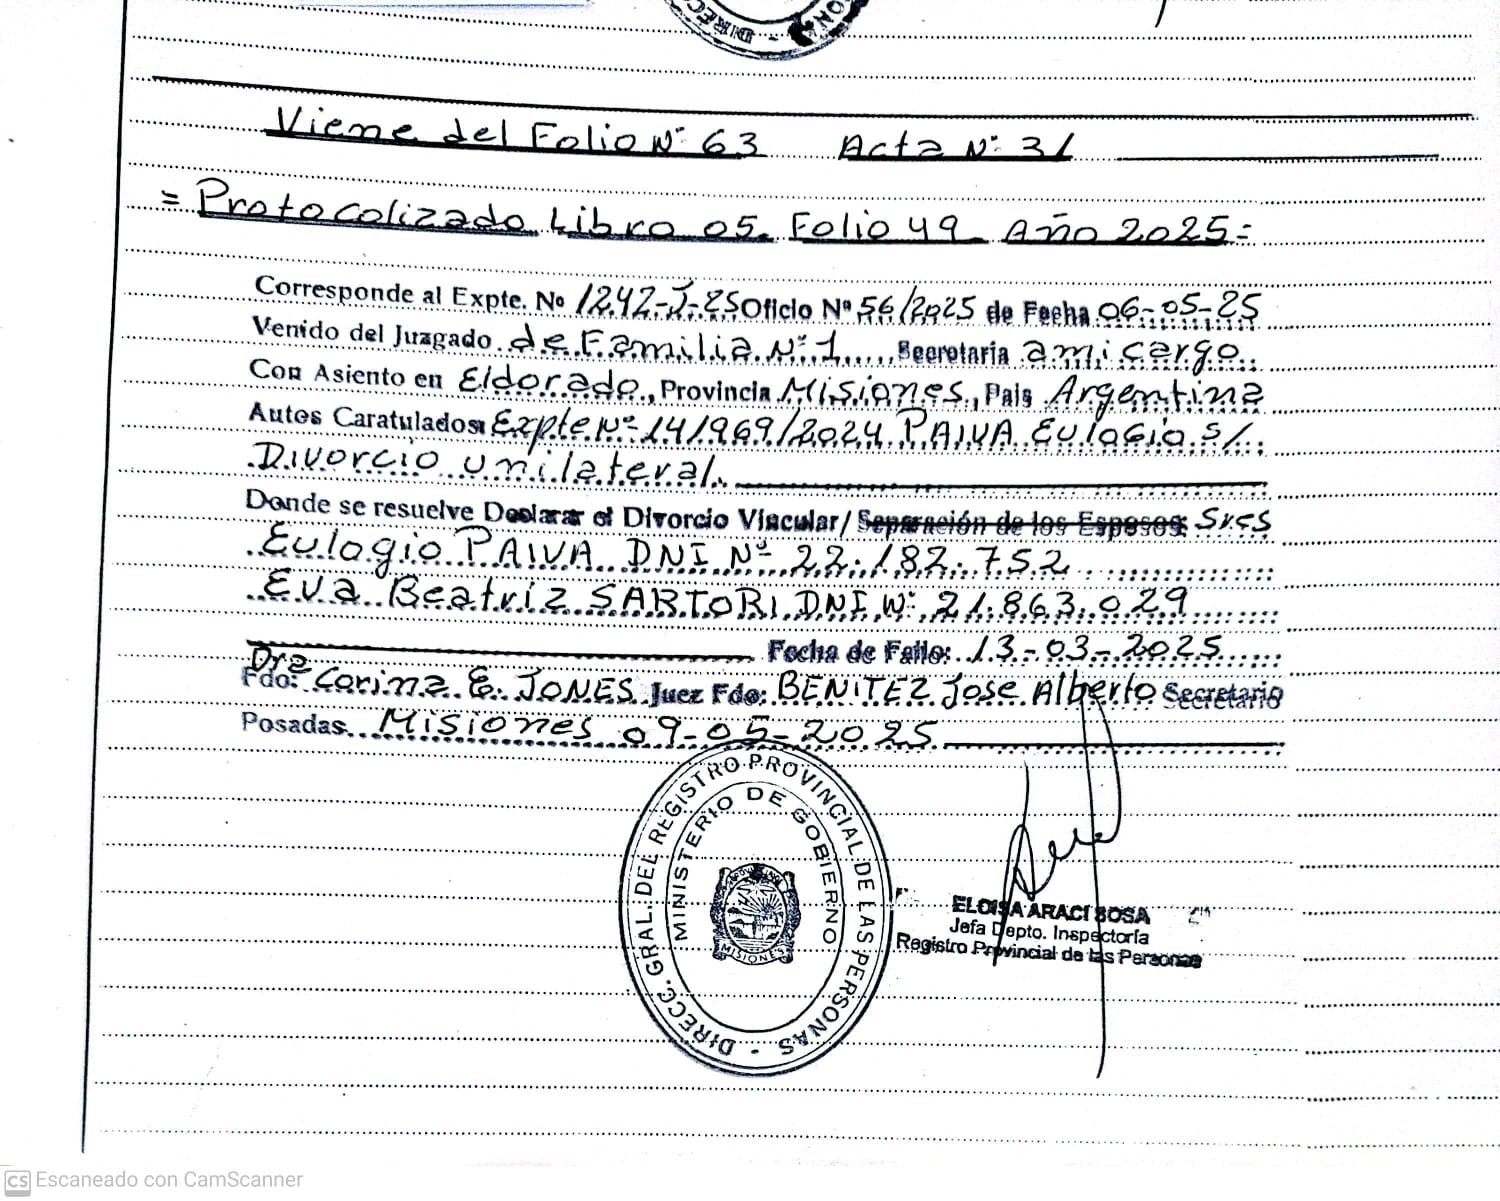 DIRECC
Viene del Folio Nº 63 Acta Nº 31
= Protocolizado Libro 05. Folio 49 Año 2025=
Corresponde al Expte. Nº 1242-J-25 Oficio Nº 56/2025 de Fecha 06-05-25
Venido del Juzgado de Familia Nº 1 Secretaria a mi cargo.
Con Asiento en Eldorado, Provincia Misiones, Pais Argentina
Autos Caratulados: Expte Nº 141969/2024 PAIVA Eulogio s/.
Divorcio unilateral.
Donde se resuelve Declarar el Divorcio Vincular/ Separación de los Esposos: Sres
Eulogio PAIVA DNI Nº 22.182.752
Eva Beatriz SARTORI DNI Nº 21.863.029
Fecha de Fallo: 13-03-2025
Fdo: Dra Corina E. JONES Juez Fdo: BENITEZ Jose Alberto Secretario
Posadas. Misiones 09-05-2025
DIRECC. GRAL. DEL REGISTRO PROVINCIAL DE LAS PERSONAS -
MINISTERIO DE GOBIERNO
MISIONES
ELOISA ARACI SOSA
Jefa Depto. Inspectoría
Registro Provincial de las Personas
CS Escaneado con CamScanner